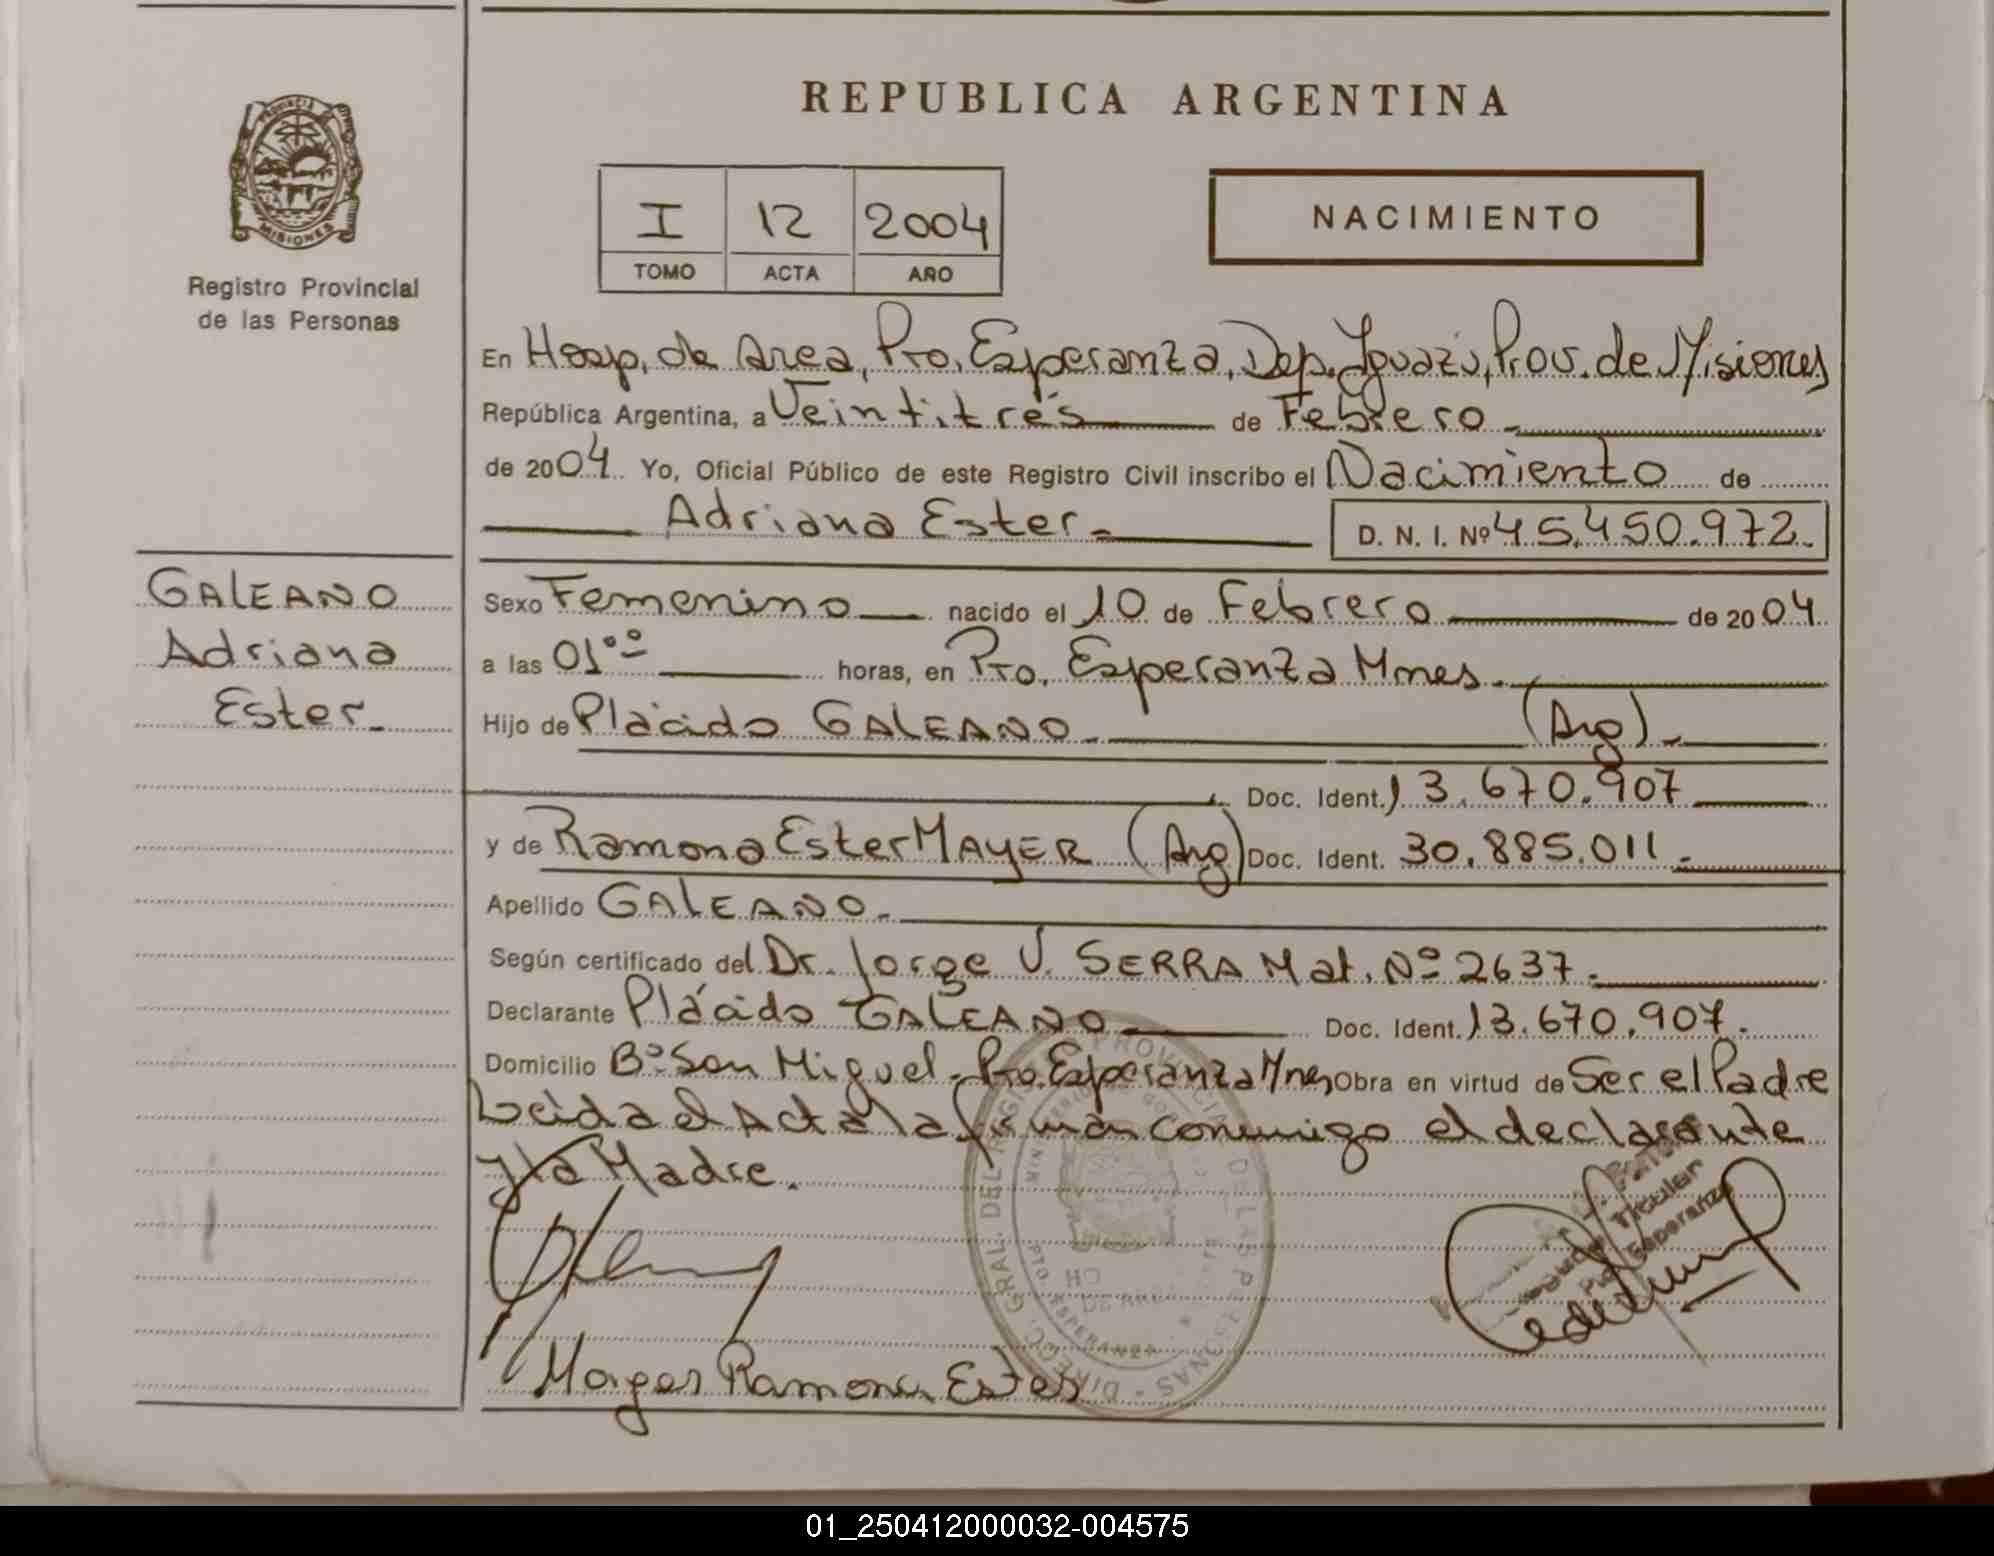 REPUBLICA ARGENTINA
PROVINCIA
MISIONES
Registro Provincial
de las Personas
I 12 2004
TOMO ACTA AÑO
NACIMIENTO
En Hosp. de Area, Pto. Esperanza, Dep. Iguazú, Prov. de Misiones
República Argentina, a Veintitrés de Febrero
de 2004 Yo, Oficial Público de este Registro Civil inscribo el Nacimiento de
Adriana Ester
D. N. I. Nº 45.450.972
GALEANO
Adriana
Ester
Sexo Femenino nacido el 10 de Febrero de 2004
a las 01°° horas, en Pto. Esperanza Mnes.
Hijo de Plácido GALEANO (Arg)
Doc. Ident. 13.670.907
y de Ramona Ester MAYER (Arg) Doc. Ident. 30.885.011
Apellido GALEANO
Según certificado del Dr. Jorge V. SERRA Mat. Nº 2637
Declarante Plácido GALEANO Doc. Ident. 13.670.907
Domicilio Bº San Miguel - Pto. Esperanza Mnes Obra en virtud de Ser el Padre
Leida el Acta la firman conmigo el declarante
y la Madre.
DIRECC. GRAL. DEL REGISTRO PROVINCIAL DE LAS PERSONAS
PTO. ESPERANZA
Titular
Pto Esperanza
Mayer Ramona Ester
01_250412000032-004575